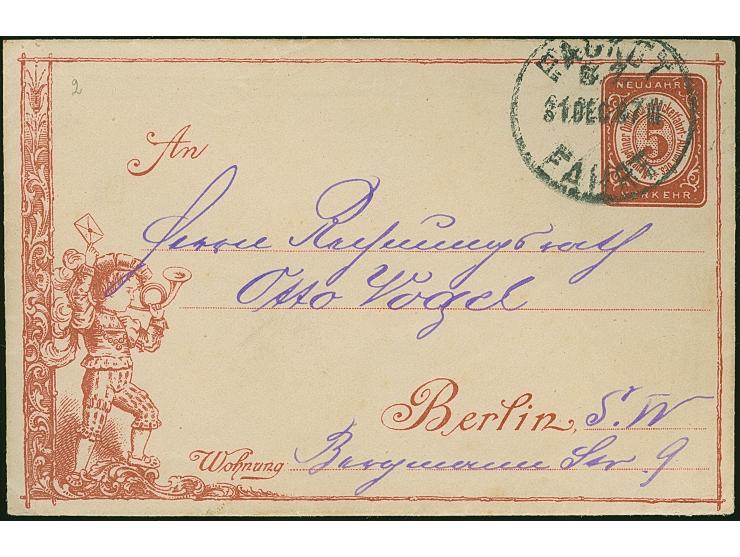 2
PACKET
31.DEC.87
NEUJAHRS
5
VERKEHR
An
Herrn Rechnungsrath
Otto Vogel
Berlin, S. W
Wohnung Bergmann Str 9